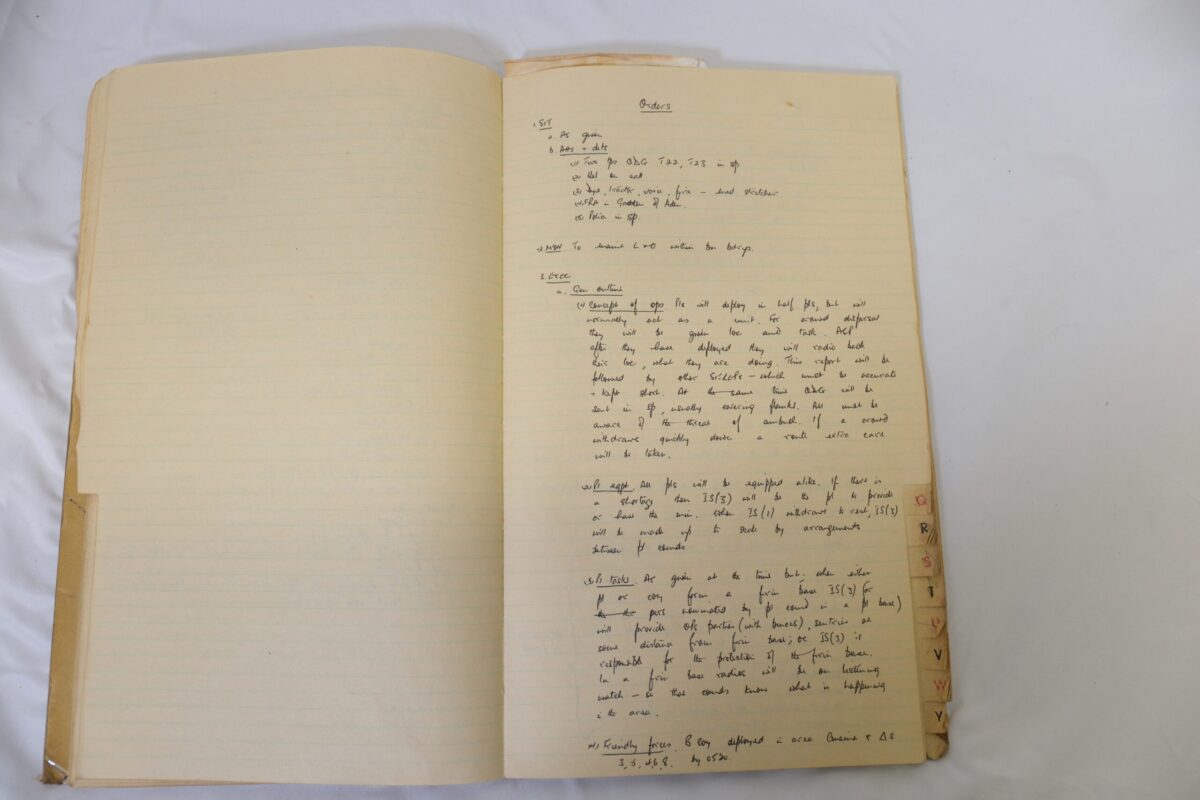 Orders
1. SIT
a. As given
b. Atts + dets
(1) Two tps QDG T22, T23 in sp
(2) Hel on call
(3) Dogs, tracker, voice, fire – and stretcher
(4) FRA in Garden of Aden.
(5) Police in sp.
2. MSN. To ensure L + O within bn bdrys.
3. EXEC
a. Gen outline
(1) Concept of ops Pls will deploy in half pls, but will
normally act as a unit. For crowd dispersal
they will be given loc and task. ASP
after they have deployed they will radio back
their loc, what they are doing. This report will be
followed by other SITREPs – which must be accurate
+ kept short. At the same time QDG will be
sent in sp, usually covering flanks. All must be
aware of the threat of ambush. If a crowd
withdraws quickly down a route extra care
will be taken.
(2) Pl eqpt All pls will be equipped alike. If there is
a shortage then IS(3) will be the pl to provide
or have the min. When IS(1) withdraws to rest, IS(3)
will be made up to scale by arrangements
between pl comds
(3) Pl tasks. As given at the time but. when either
pl or coy form a firm base IS(3) (or
pers nominated by pl comd in a pl base)
will provide OPs parties (with binocs), sentries at
some distance from firm base; ie IS(3) is
responsible for the protection of the firm base.
In a firm base radios will be on listening
watch – so that comds know what is happening
in the area.
(4) Friendly forces. B coy deployed in area
3, 5, 6, 8. by 0520.
Q
R
S
T
U
V
W
Y